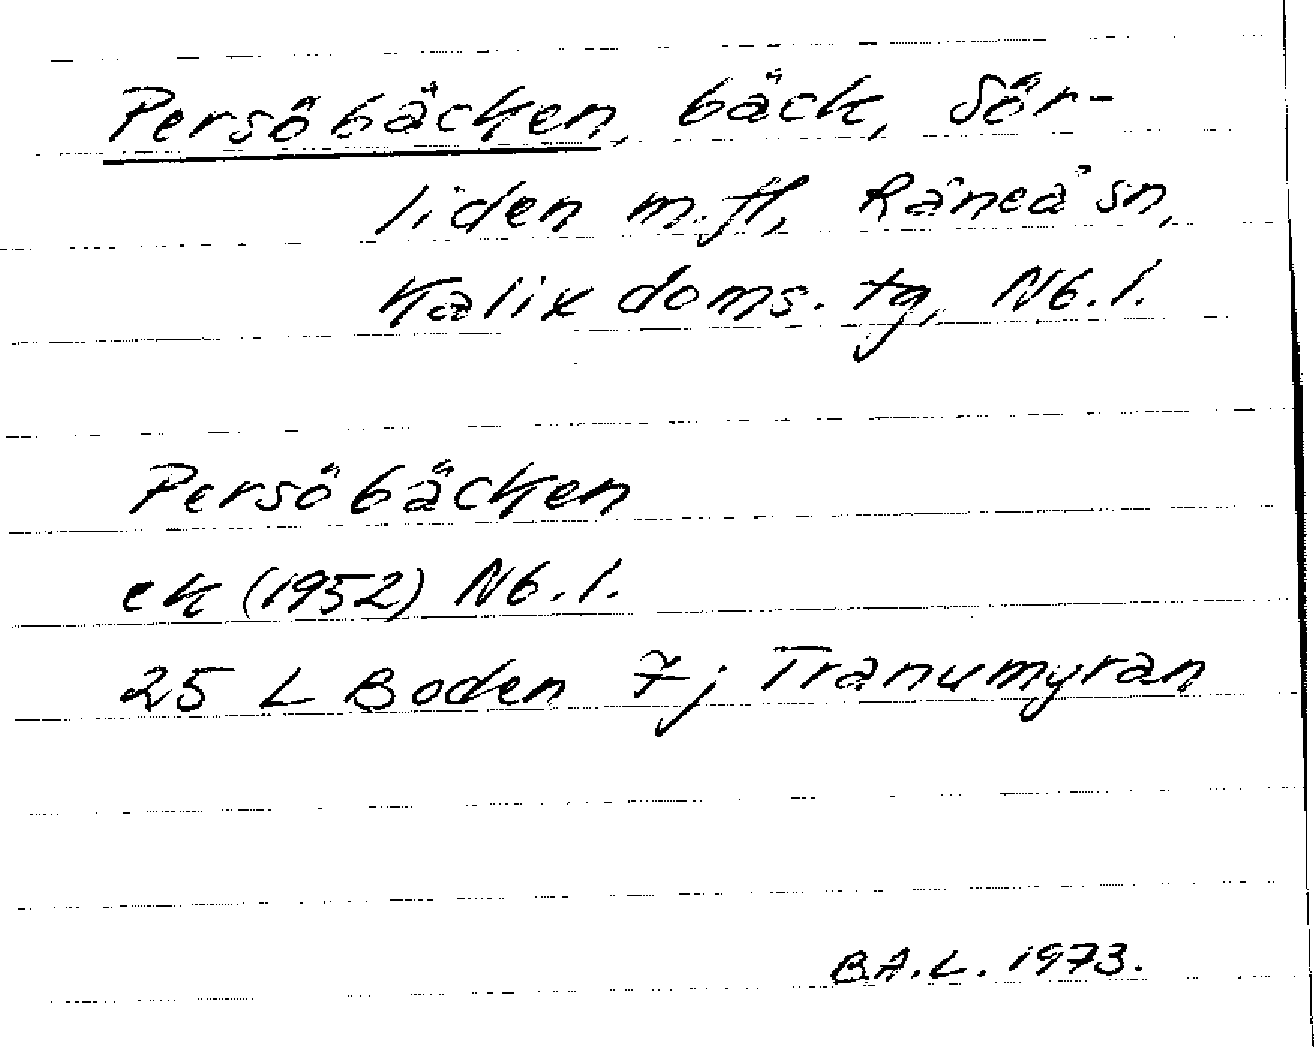 Persöbäcken, bäck, Sör-
liden m.fl, Råneå sn,
Kalix doms. tg, Nb. l.
Persöbäcken
ek (1952) Nb. l.
25 L Boden 7j Tranumyran
B.A.L. 1973.